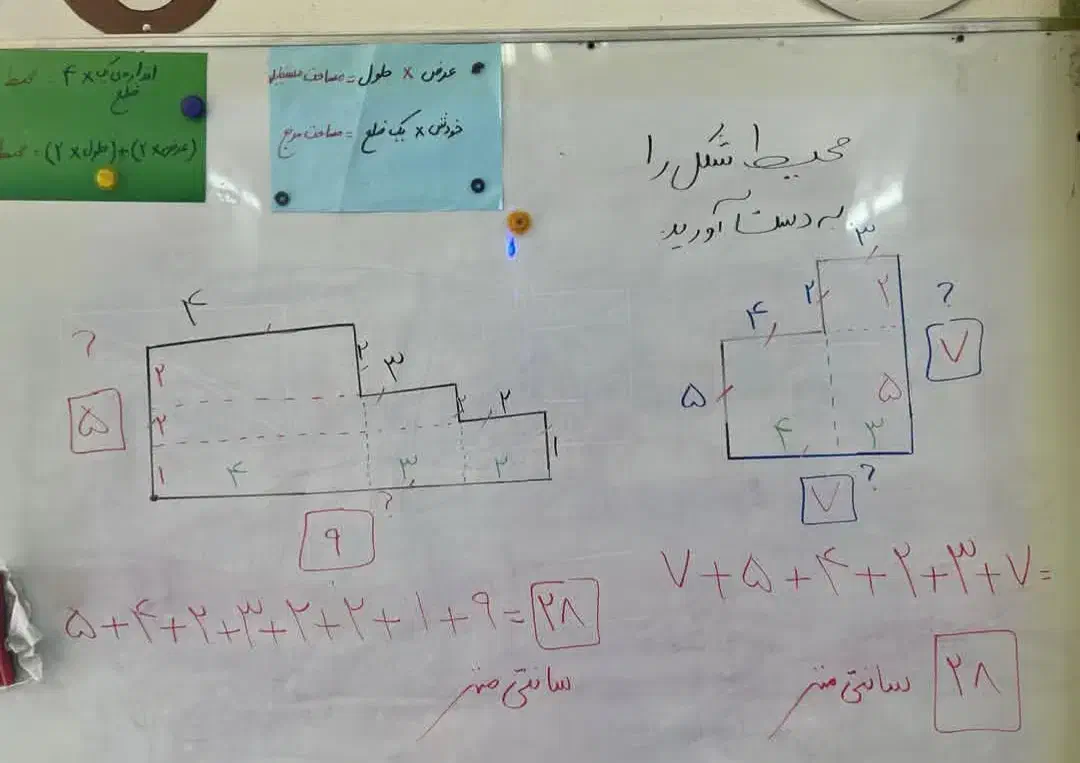 محیط شکل را
به دست آورید.
عرض × طول = مساحت مستطیل
خودش × یک ضلع = مساحت مربع
اندازه‌ی یک ضلع × ۴ = محیط
(عرض × ۲) + (طول × ۲) = محیط
۳
۲
۲
؟
۴
۷
۵
۵
۴
۳
۷
؟
۷+۵+۴+۲+۳+۷=
۲۸ سانتی متر
۴
؟
۲
۲
۳
۵
۲
۲
۲
۱
۱
۴
۳
۳
؟
۹
۵+۴+۲+۳+۲+۲+۱+۹=۲۸
سانتی متر